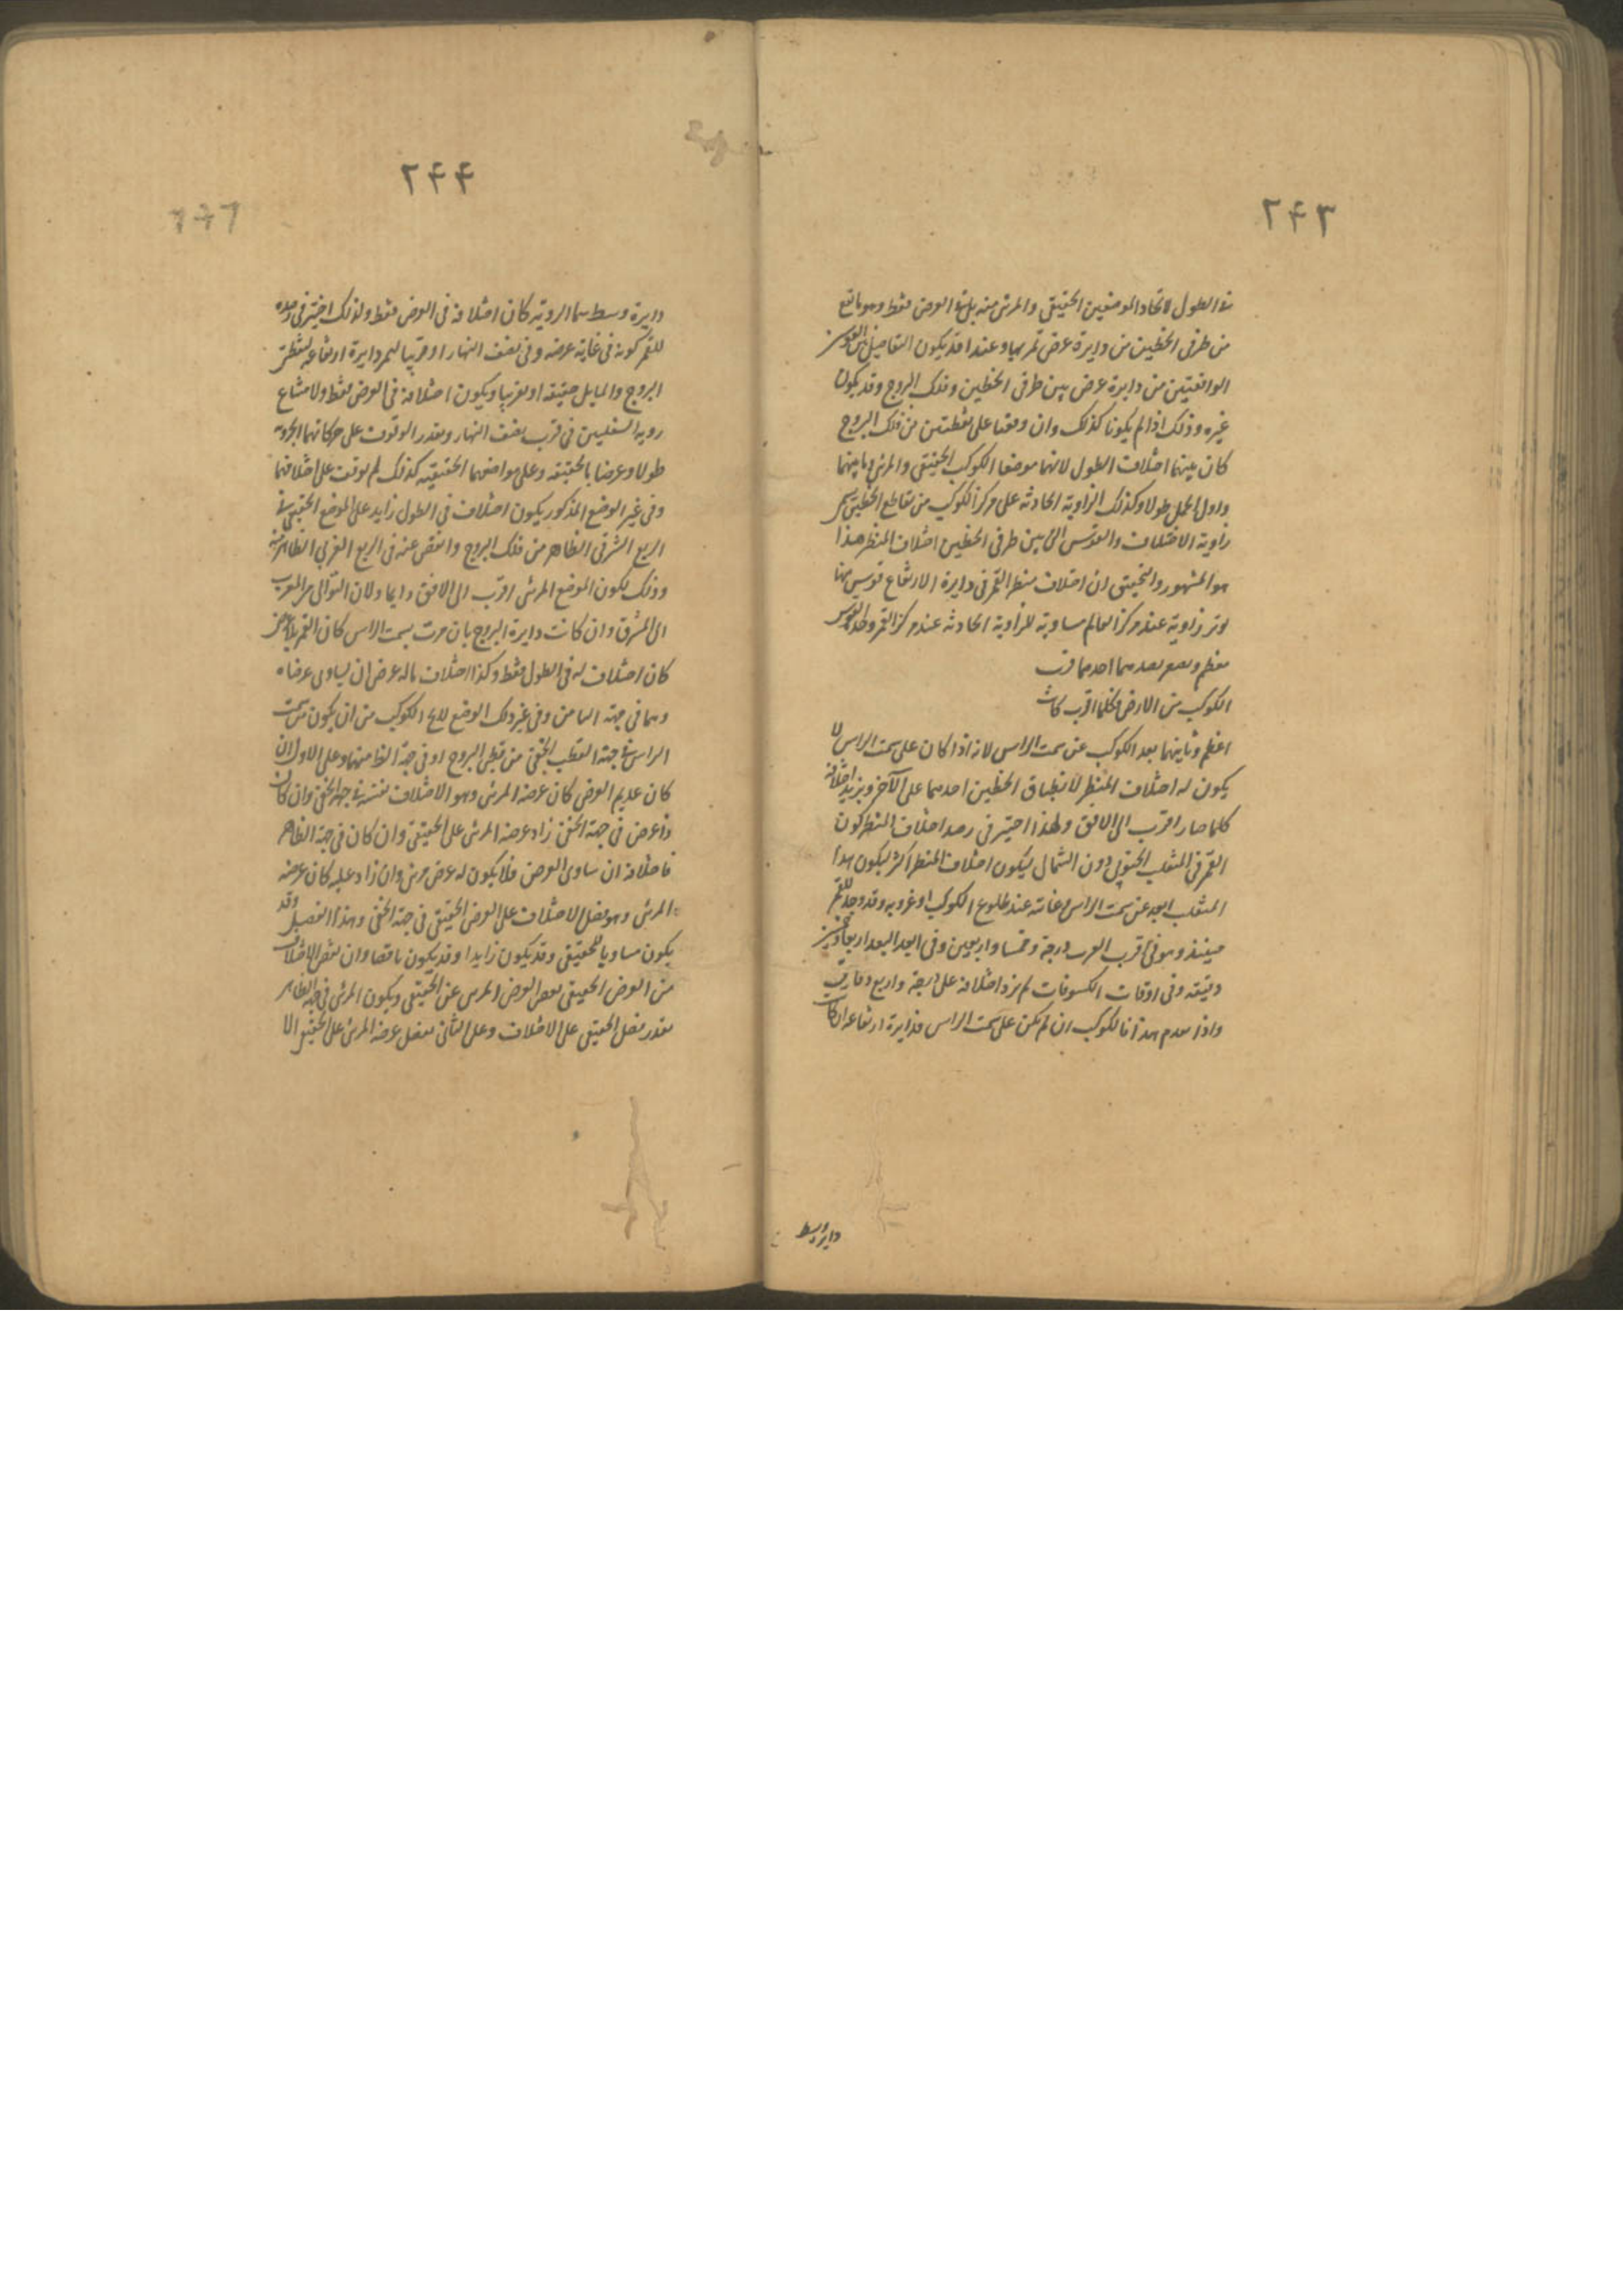 ٢۴٣
فى الطول لاتحاد الموضعين الحقيقى والمرئى منه بل فى العرض فقط وهو ما يقع
من طرفى الخطين من دايرة عرض تمر بهما وعند اقد يكون التفاضل بين القوسين
الواقعتين من دايرة عرض بين طرفى الخطين وفلك البروج وقد يكون
غيره وذلك اذا لم يكونا كذلك وان وقعا على نقطتين من فلك البروج
كان بينهما اختلاف الطول لانهما موضعا الكوكب الحقيقى والمرئى ما بينهما
واول الحمل طولا وكذلك الزاوية الحادثة على مركز الكوكب من تقاطع الخطين تسمى
زاوية الاختلاف والقوس التى بين طرفى الخطين اختلاف المنظر هذا
هو المشهور والتحقيق ان اختلاف منظر القمر فى دايرة الارتفاع قوس منها
يوتر زاوية عند مركز العالم مساوية للزاوية الحادثة عند مركز القمر وهذه القوس
تعظم وتصغر بعدهما احدهما قرب
الكوكب من الارض فكلما اقرب كانت
اعظم وثانيهما بعد الكوكب عن سمت الراس لانه اذا كان على سمت الراس لا
يكون له اختلاف المنظر لانطباق الخطين احدهما على الآخر ويزيد اختلافه
كلما صار اقرب الى الافق ولهذا اختير فى رصد اختلاف المنظر كون
القمر فى المنقلب الجنوبى دون الشمالى ليكون اختلاف المنظر اكثر ليكون هذا
المنقلب ابعد عن سمت الراس وغايته عند طلوع الكوكب او غروبه وقد وجد للقمر
حينئذ وهو فى اقرب القرب درجة وخمسا واربعين وفى ابعد البعد اربعا وخمسين
دقيقة وفى اوقات الكسوفات لم يزد اختلافه على درجة واربع دقايق
واذا تقدم هذا فالكوكب ان لم يكن على سمت الراس فدايرة ارتفاعه ان كانت
دايرة وسط
٢۴۴
دايرة وسط سما الروية كان اختلافه فى العرض فقط ولذلك اختير فى رصده
للقمر كونه فى غاية عرضه وفى نصف النهار او قريبا لتمر دايرة ارتفاعه بقطبى
البروج والمايل حقيقة او تقريبا ويكون اختلافه فى العرض فقط ولامتناع
روية السفليين فى قرب نصف النهار وتعذر الوقوف على حركاتهما الجزوية
طولا وعرضا بالحقيقة وعلى مواضعهما الحقيقية كذلك لم يوقف على اختلافهما
وفى غير الوضع المذكور يكون اختلاف فى الطول زايد على الموضع الحقيقى فى
الربع الشرقى الظاهر من فلك البروج وانقص عنه فى الربع الغربى الظاهر منه
وذلك لكون الموضع المرئى اقرب الى الافق دايما ولان التوالى من المغرب
الى المشرق وان كانت دايرة البروج بان مرت بسمت الراس كان القمر بلا عرض
كان اختلاف له فى الطول فقط وكذا اختلاف ماله عرض ان يساوى عرضاه
وهما فى جهة الثامن وفى غير ذلك الوضع للا الكوكب من ان يكون من سمت
الراس فى جهة القطب الخفى من قطبى البروج او فى جهة الظا منهما وعلى الاول ان
كان عديم العرض كان عرضه المرئى وهو الاختلاف نفسه فى جهة الخفى وان كان
ذا عرض فى جهة الخفى زاد عرضه المرئى على الحقيقى وان كان فى جهة الظاهر
فاختلافه ان ساوى العرض فلا يكون له عرض مرئى وان زاد عليه كان عرضه
المرئى وهو فضل الاختلاف على العرض الحقيقى فى جهة الخفى وهذا الفضل وقد
يكون مساويا للحقيقى وقد يكون زايدا وقد يكون ناقصا وان نقص الاختلاف
من العرض الحقيقى نقص العرض المرئى عن الحقيقى ويكون المرئى فى جهة الظاهر
بقدر فضل الحقيقى على الاختلاف وعلى الثانى بفضل عرضه المرئى على الحقيقى الا